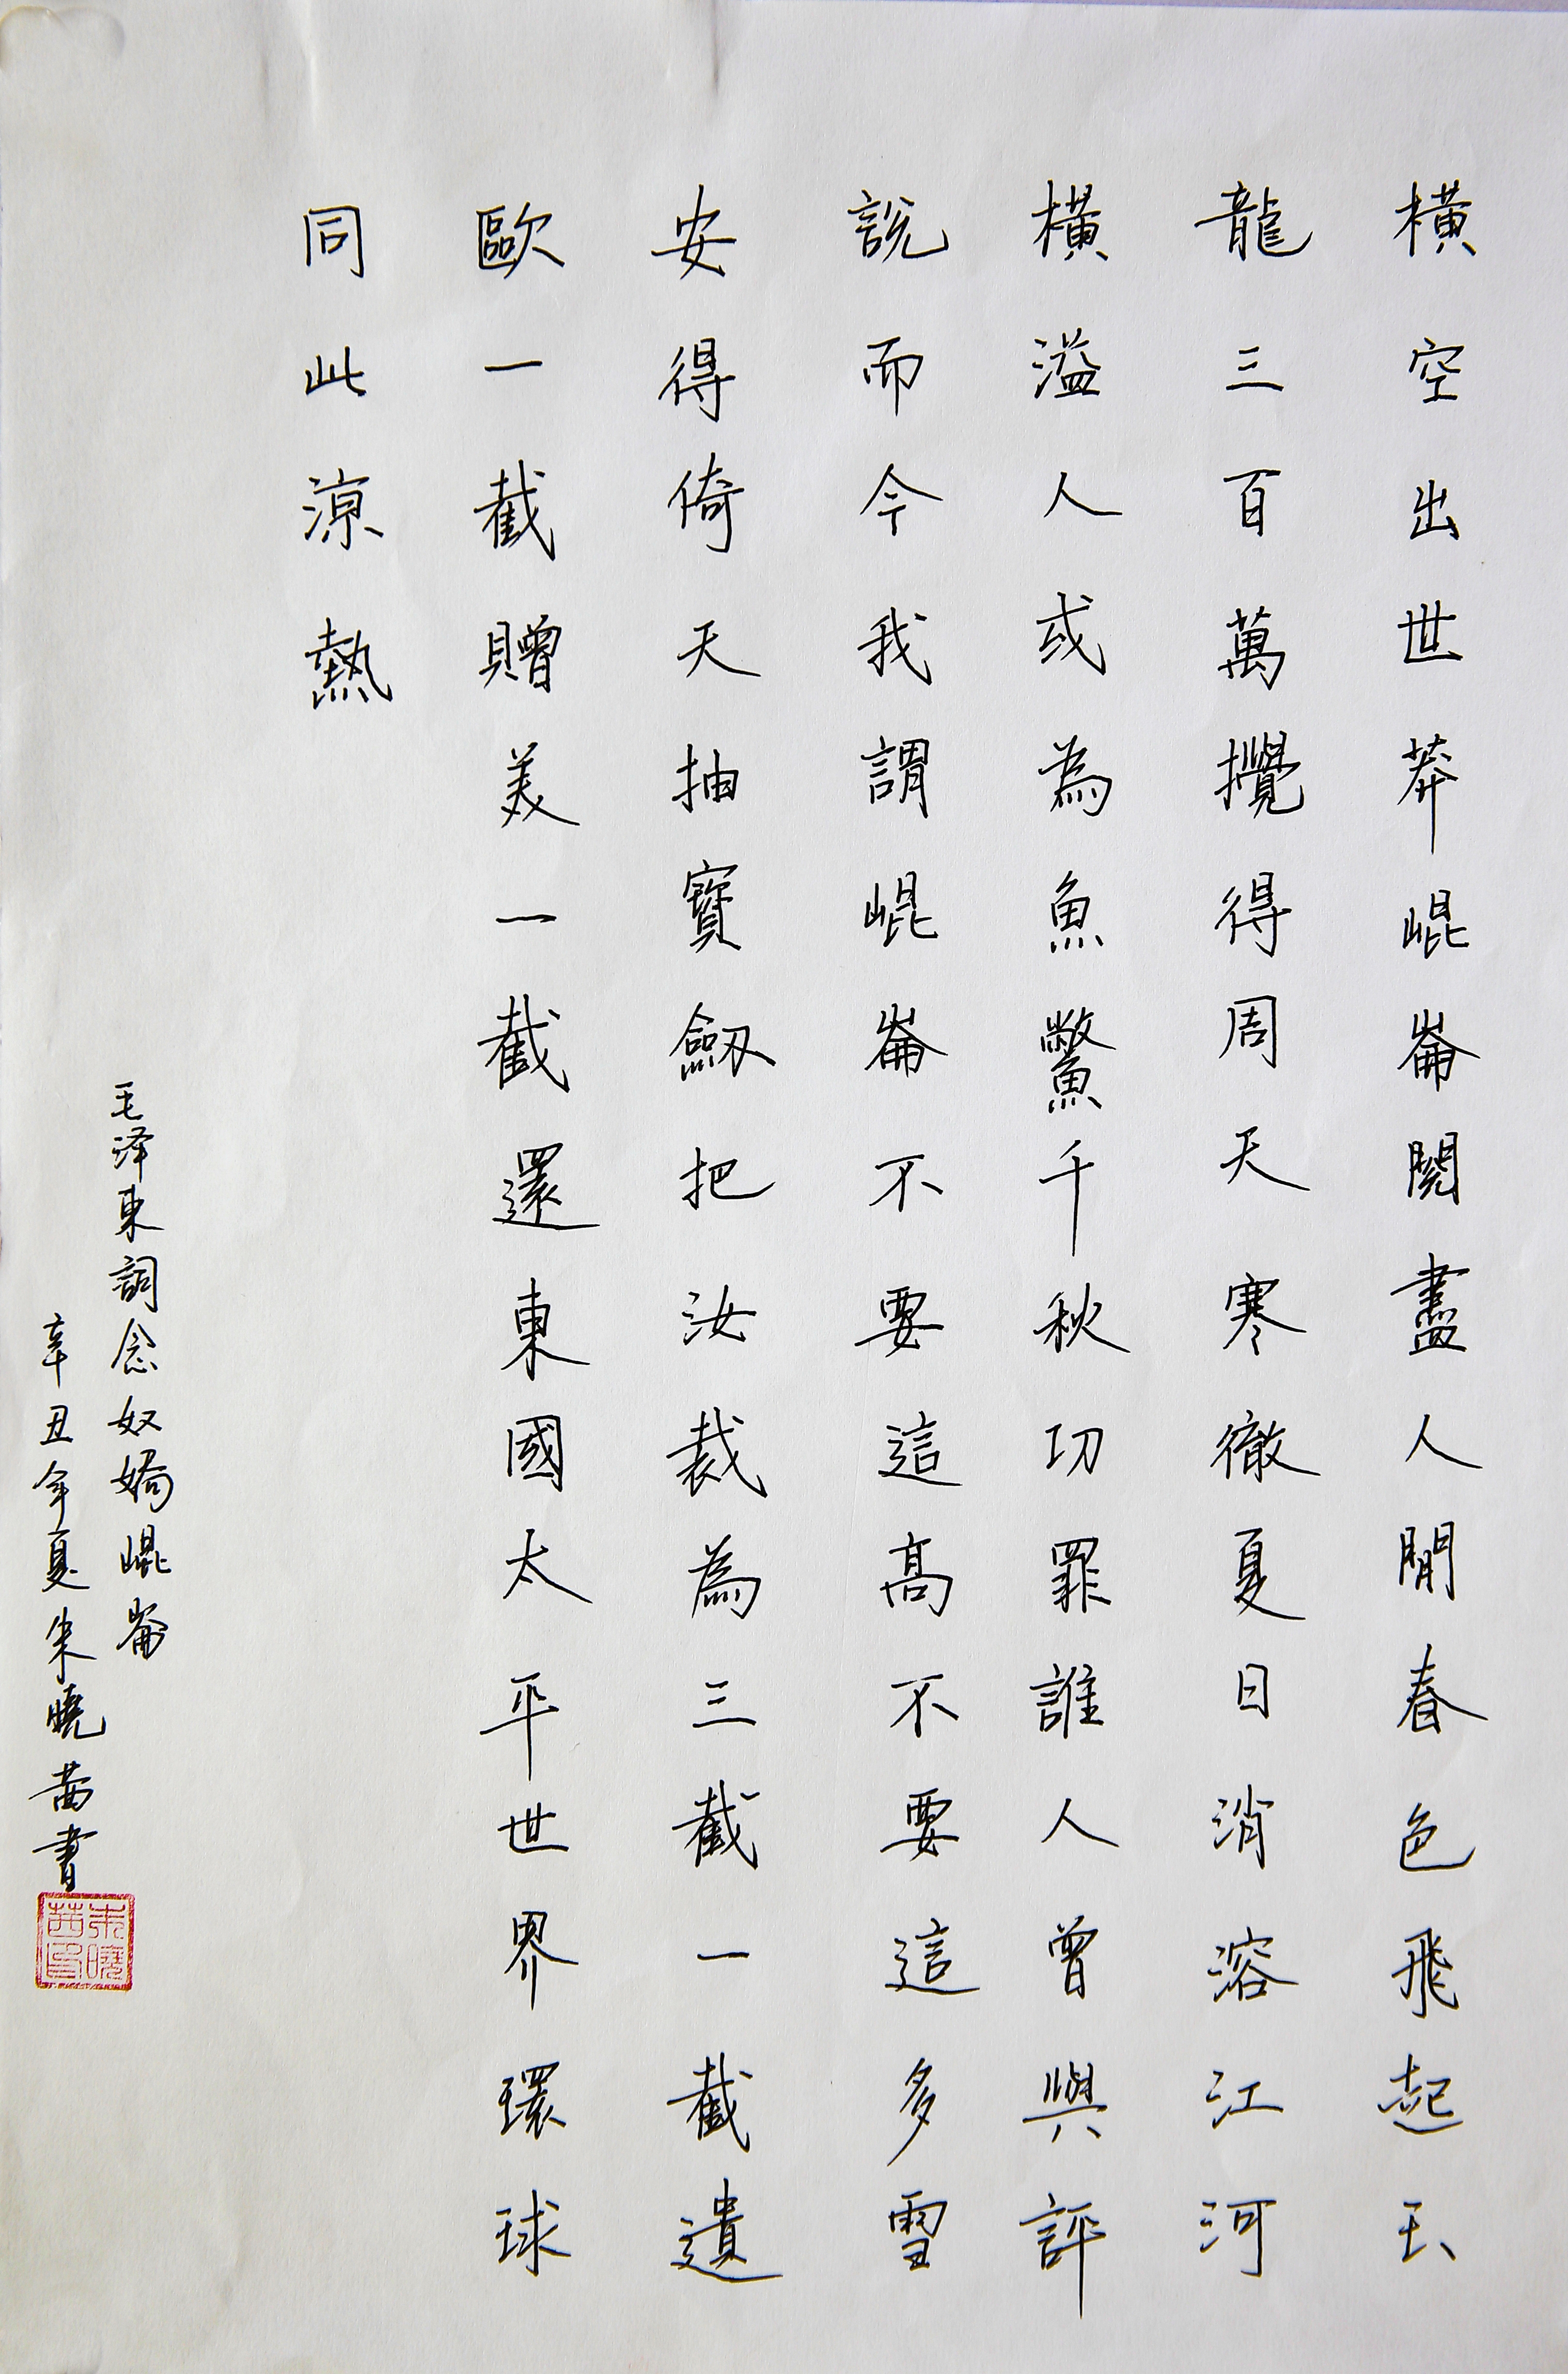 橫空出世莽崐崙閱盡人閒春色飛起玉
龍三百萬攪得周天寒徹夏日消溶江河
橫溢人或為魚鱉千秋功罪誰人曾與評
說而今我謂崐崙不要這高不要這多雪
安得倚天抽寶劔把汝裁為三截一截遺
歐一截贈美一截還東國太平世界環球
同此涼熱
毛泽東詞念奴嬌崐崙
辛丑年夏朱曉茜書
朱曉茜印